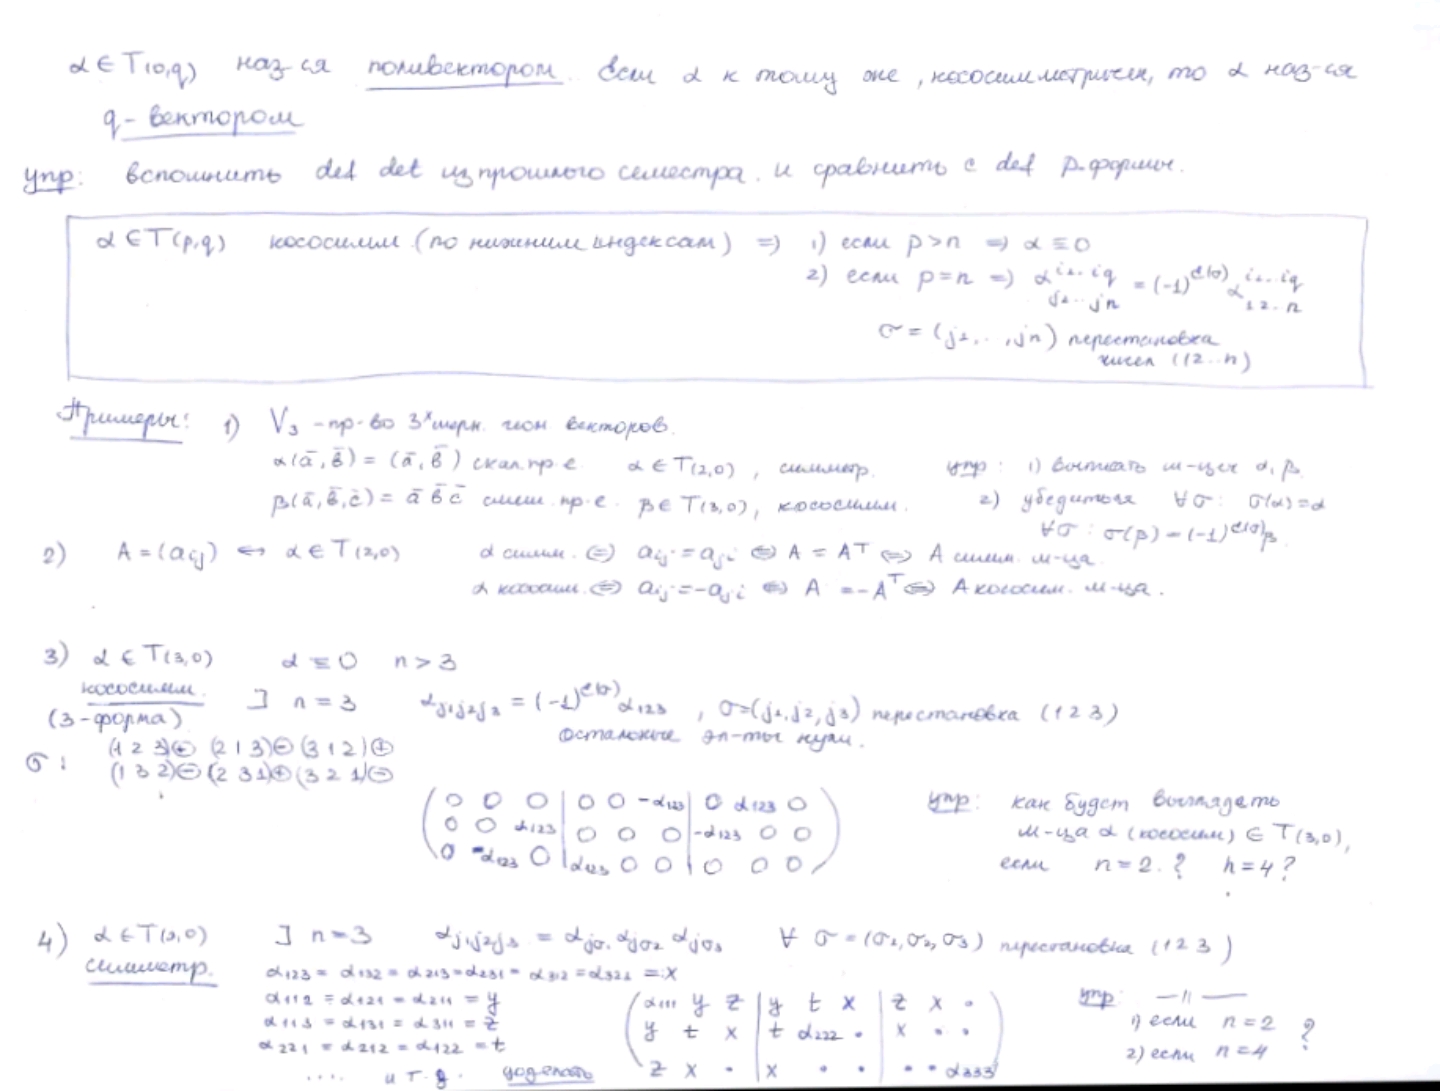 α ∈ T(0,q) наз-ся поливектором. Если α к тому же, кососимметричен, то α наз-ся
q-вектором
Упр: вспомнить def det из прошлого семестра. и сравнить с def p-формы.
α ∈ T(p,q) кососимм. (по нижним индексам) ⇒ 1) если p>n ⇒ α ≡ 0
2) если p=n ⇒ α^{i₁...iq}_{j₁...jn} = (-1)^{ε(σ)} α^{i₁...iq}_{12...n}
σ = (j₁,..,jn) перестановка
чисел (12..n)
Примеры: 1) V₃ - пр-во 3ˣ мерн. геом векторов.
α(ā, b̄) = (ā, b̄) скал.пр-е. α ∈ T(2,0), симметр. упр: 1) выписать м-цы α, β
β(ā, b̄, c̄) = ā b̄ c̄ смеш. пр-е. β ∈ T(3,0), кососимм. 2) убедиться ∀σ: σ(α) = α
∀σ: σ(β) = (-1)^{ε(σ)} β
2) A = (aij) ↔ α ∈ T(2,0) α симм. ⇔ aij = aji ⇔ A = Aᵀ ⇔ A симм. м-ца.
α кососим. ⇔ aij = -aji ⇔ A = -Aᵀ ⇔ A кососим. м-ца.
3) α ∈ T(3,0) α ≡ 0 n > 3
кососимм. ] n = 3 α_{j₁j₂j₃} = (-1)^{ε(σ)} α₁₂₃, σ=(j₁,j₂,j₃) перестановка (1 2 3)
(3-форма) Остальные эл-ты нули.
σ: (1 2 3)⊕ (2 1 3)⊖ (3 1 2)⊕
(1 3 2)⊖ (2 3 1)⊕ (3 2 1)⊖
( 0 0 0 | 0 0 -α₁₂₃ | 0 α₁₂₃ 0 )
0 0 α₁₂₃ | 0 0 0 | -α₁₂₃ 0 0
0 -α₁₂₃ 0 | α₁₂₃ 0 0 | 0 0 0
упр: как будет выглядеть
м-ца α (кососим) ∈ T(3,0),
если n = 2. ? n = 4 ?
4) α ∈ T(3,0) ] n = 3 α_{j₁j₂j₃} = α_{jσ₁} α_{jσ₂} α_{jσ₃} ∀ σ = (σ₁, σ₂, σ₃) перестановка (1 2 3)
симметр.
α₁₂₃ = α₁₃₂ = α₂₁₃ = α₂₃₁ = α₃₁₂ = α₃₂₁ =: x
α₁₁₂ = α₁₂₁ = α₂₁₁ = y
α₁₁₃ = α₁₃₁ = α₃₁₁ = z
α₂₂₁ = α₂₁₂ = α₁₂₂ = t
.... и т.д. доделать
( α₁₁₁ y z | y t x | z x · )
y t x | t α₂₂₂ · | x · ·
z x · | x · · | · · α₃₃₃
упр: —"—
1) если n = 2
2) если n = 4 ?